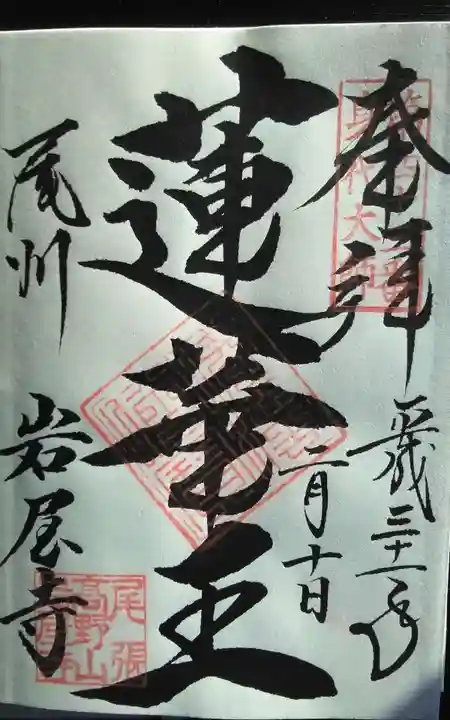 奉拝
平成三十一年
二月十日
蓮華王
尾州
岩屋寺
尾張
高野山